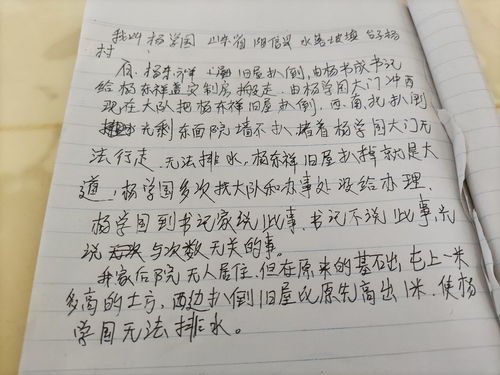 我叫杨学国 山东省阳信县水落坡镇台子杨
村
有杨东祥 旧屋扒倒,由杨书成书记
给杨东祥盖安制房搬走.由杨学国大门冲西
现在大队把杨东祥旧屋扒倒.西.南.北扒倒
光剩东面院墙不扒.堵着杨学国大门无
法行走 无法排水,杨东祥旧屋扒掉就是大
道,杨学国多次找大队和办事处没给办理.
杨学国到书记家说此事.书记不说此事,光
说 与次数无关的事。
我家后院无人居住.但在原来的基础出, 上一米
多高的土方,西边扒倒旧屋比原先高出1米.使杨
学国无法排水。